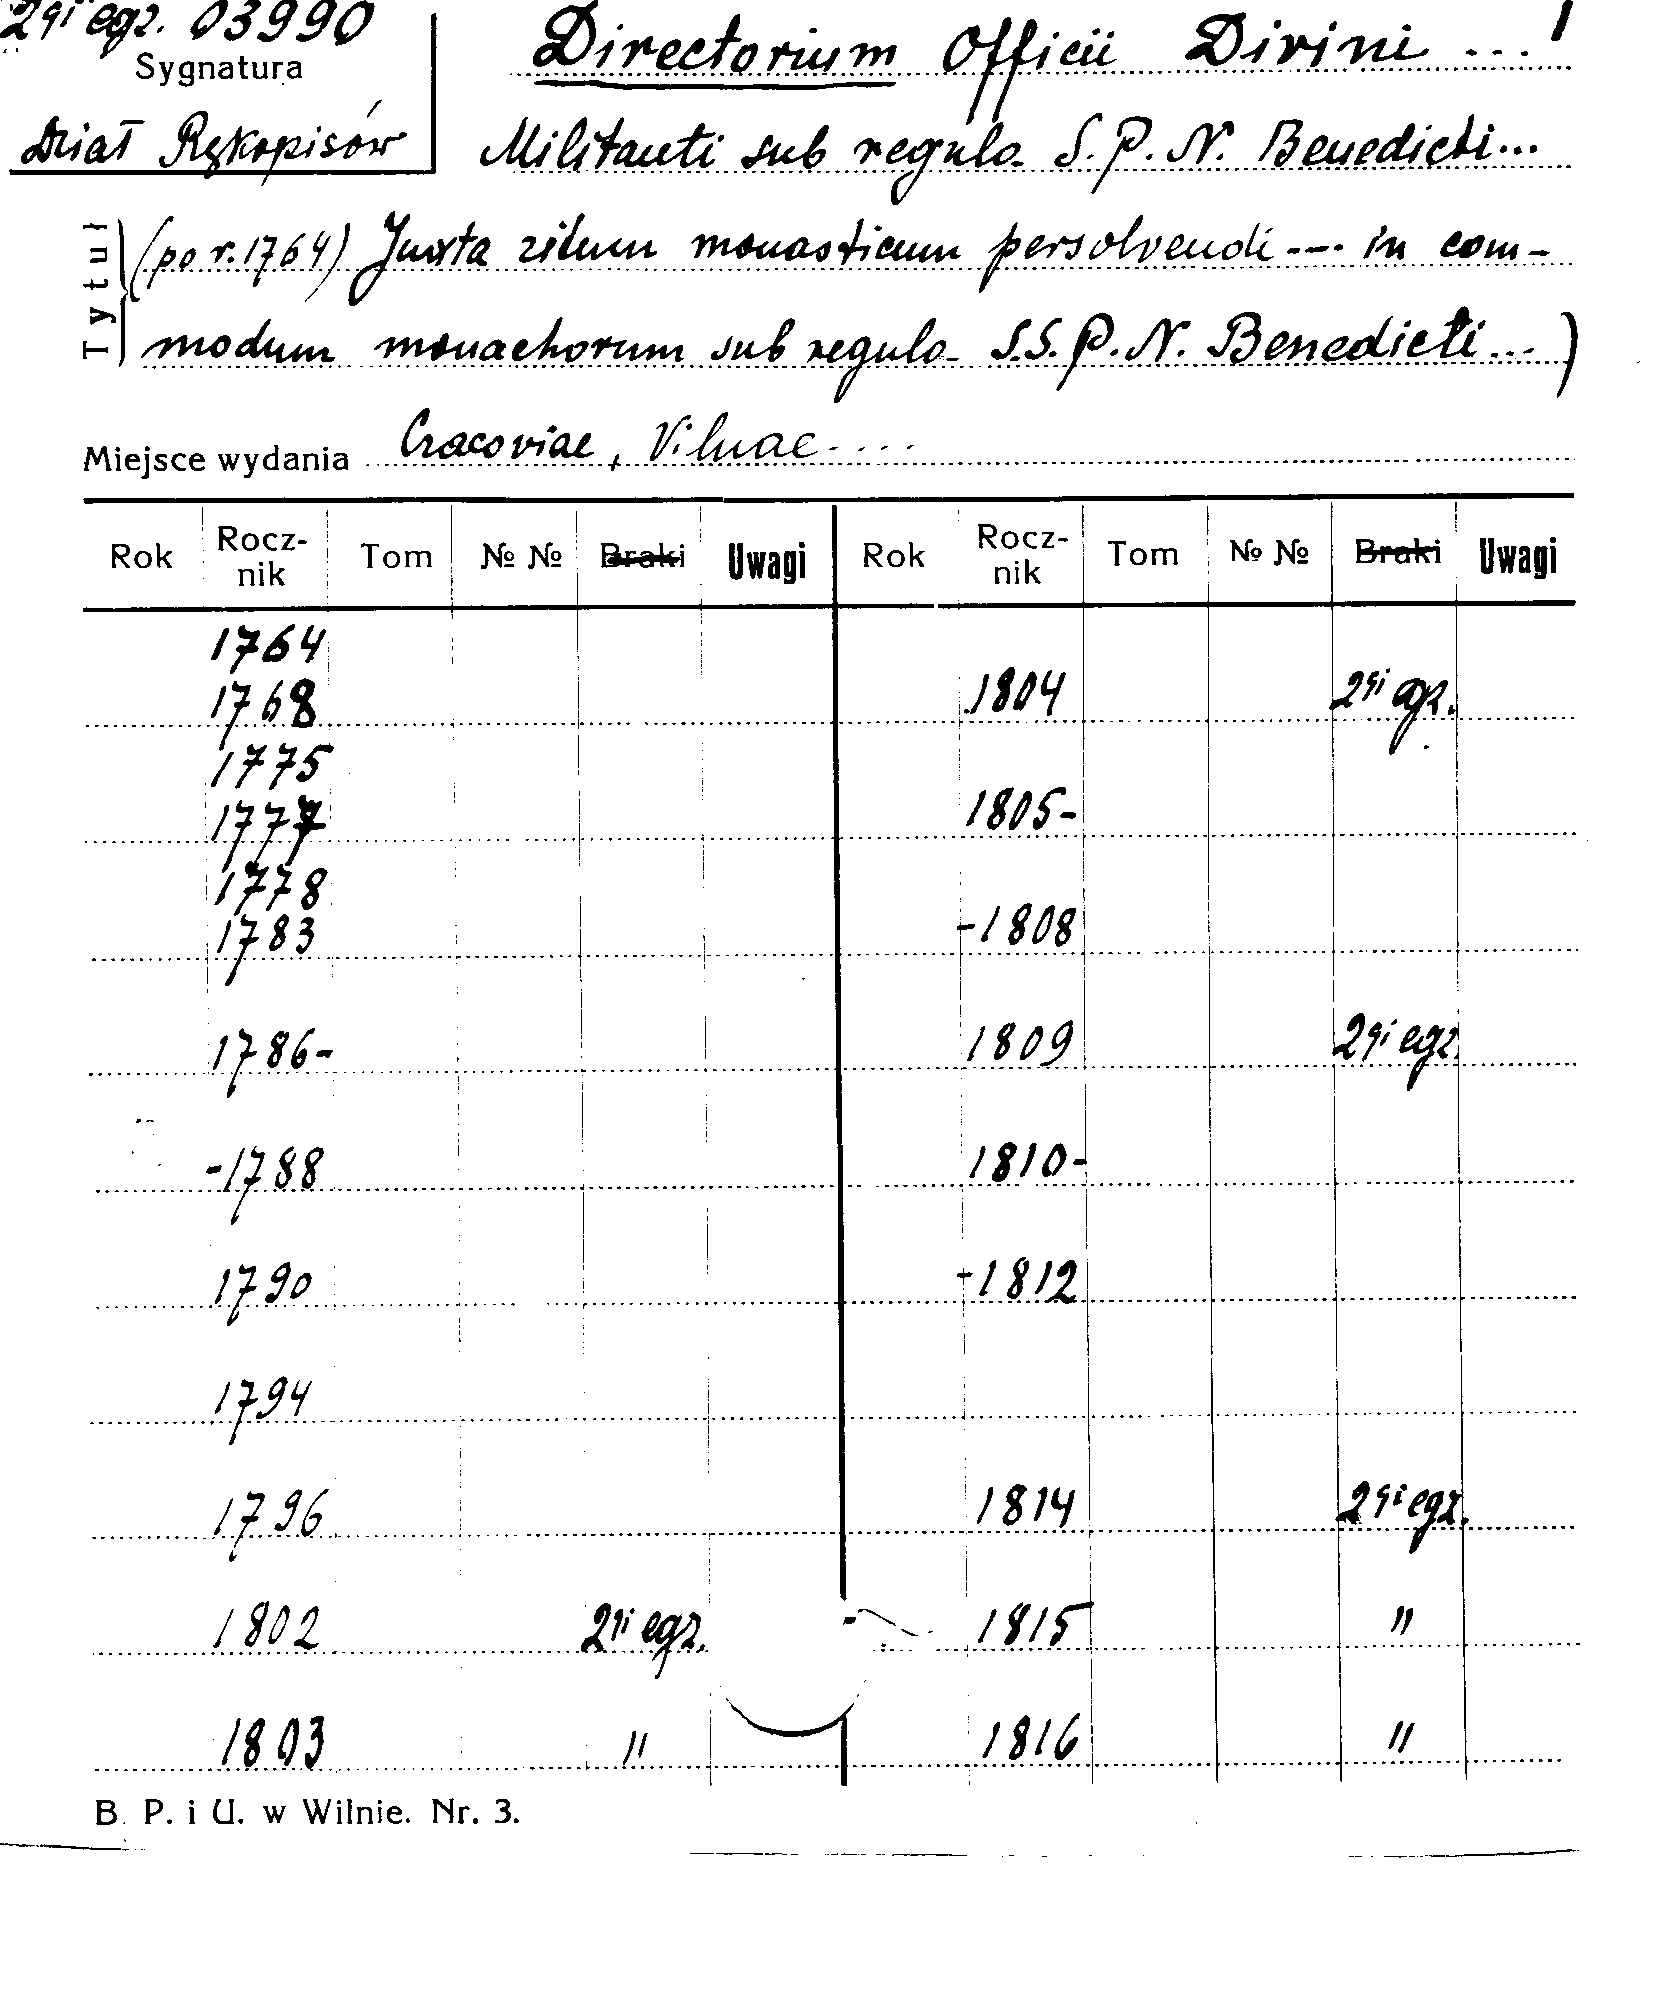 2gi egz. 03990
Sygnatura
Dział Rękopisów
Directorium Officii Divini ... 1
Militanti sub regula S. P. N. Benedicti...
Tytuł
(po r. 1764) Juxta ritum monasticum persolvendi --- in com-
modum monachorum sub regula S.S. P. N. Benedicti ... )
Miejsce wydania Cracoviae, Vilnae ....
Rok Rocz-nik Tom № № Braki Uwagi Rok Rocz-nik Tom № № Braki Uwagi
1764
1768 1804 2gi egz.
1775
1777 1805-
1778
1783 -1808
1786- 1809 2gi egz.
-1788 1810-
1790 -1812
1794
1796 1814 2gi egz.
1802 2gi egz. 1815 "
1803 " 1816 "
B. P. i U. w Wilnie. Nr. 3.